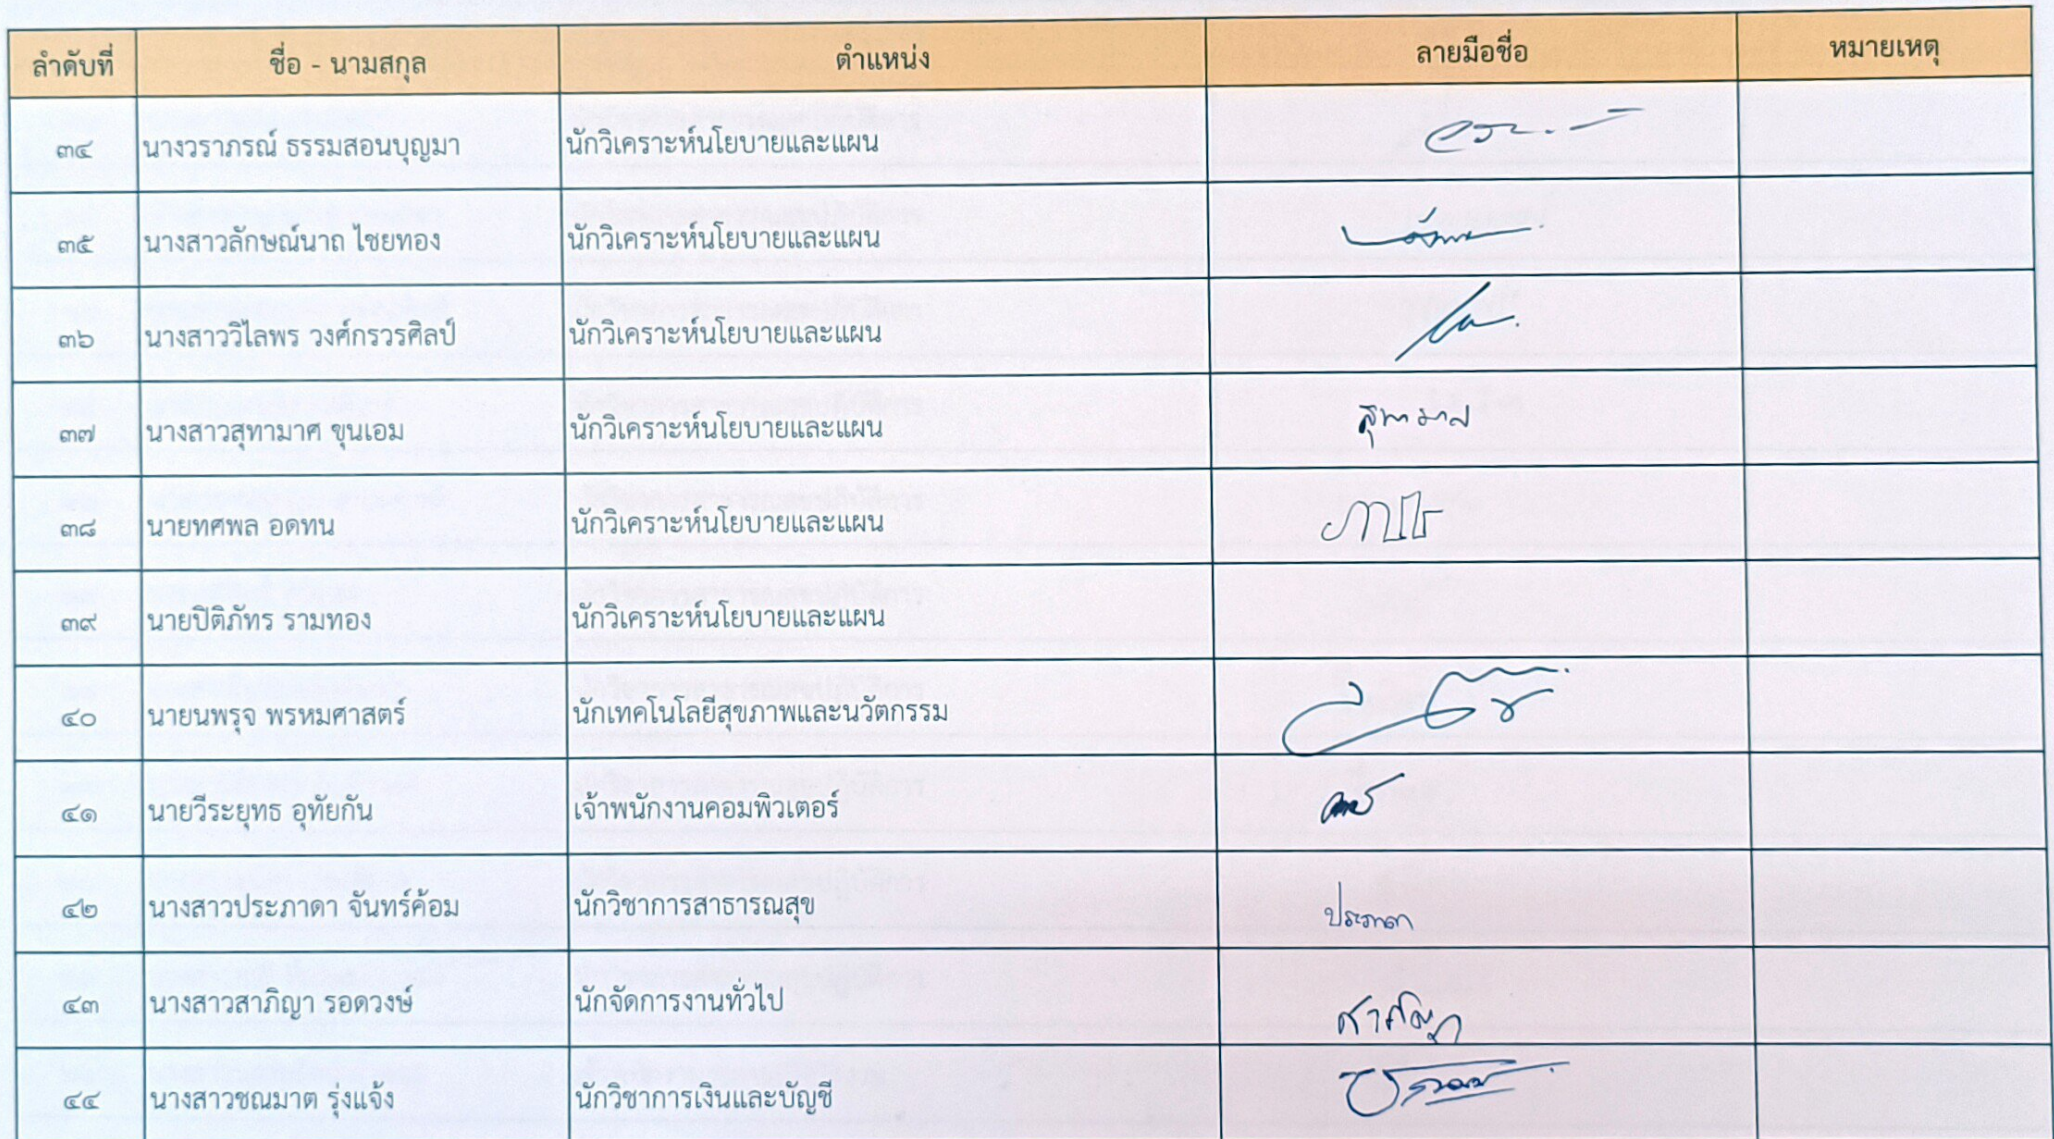 ลำดับที่ ชื่อ - นามสกุล ตำแหน่ง ลายมือชื่อ หมายเหตุ
๓๔ นางวราภรณ์ ธรรมสอนบุญมา นักวิเคราะห์นโยบายและแผน
๓๕ นางสาวลักษณ์นาถ ไชยทอง นักวิเคราะห์นโยบายและแผน
๓๖ นางสาววิไลพร วงศ์กรวรศิลป์ นักวิเคราะห์นโยบายและแผน
๓๗ นางสาวสุทามาศ ขุนเอม นักวิเคราะห์นโยบายและแผน
๓๘ นายทศพล อดทน นักวิเคราะห์นโยบายและแผน
๓๙ นายปิติภัทร รามทอง นักวิเคราะห์นโยบายและแผน
๔๐ นายนพรุจ พรหมศาสตร์ นักเทคโนโลยีสุขภาพและนวัตกรรม
๔๑ นายวีระยุทธ อุทัยกัน เจ้าพนักงานคอมพิวเตอร์
๔๒ นางสาวประภาดา จันทร์ค้อม นักวิชาการสาธารณสุข ประภาดา
๔๓ นางสาวสาภิญา รอดวงษ์ นักจัดการงานทั่วไป
๔๔ นางสาวชณมาต รุ่งแจ้ง นักวิชาการเงินและบัญชี